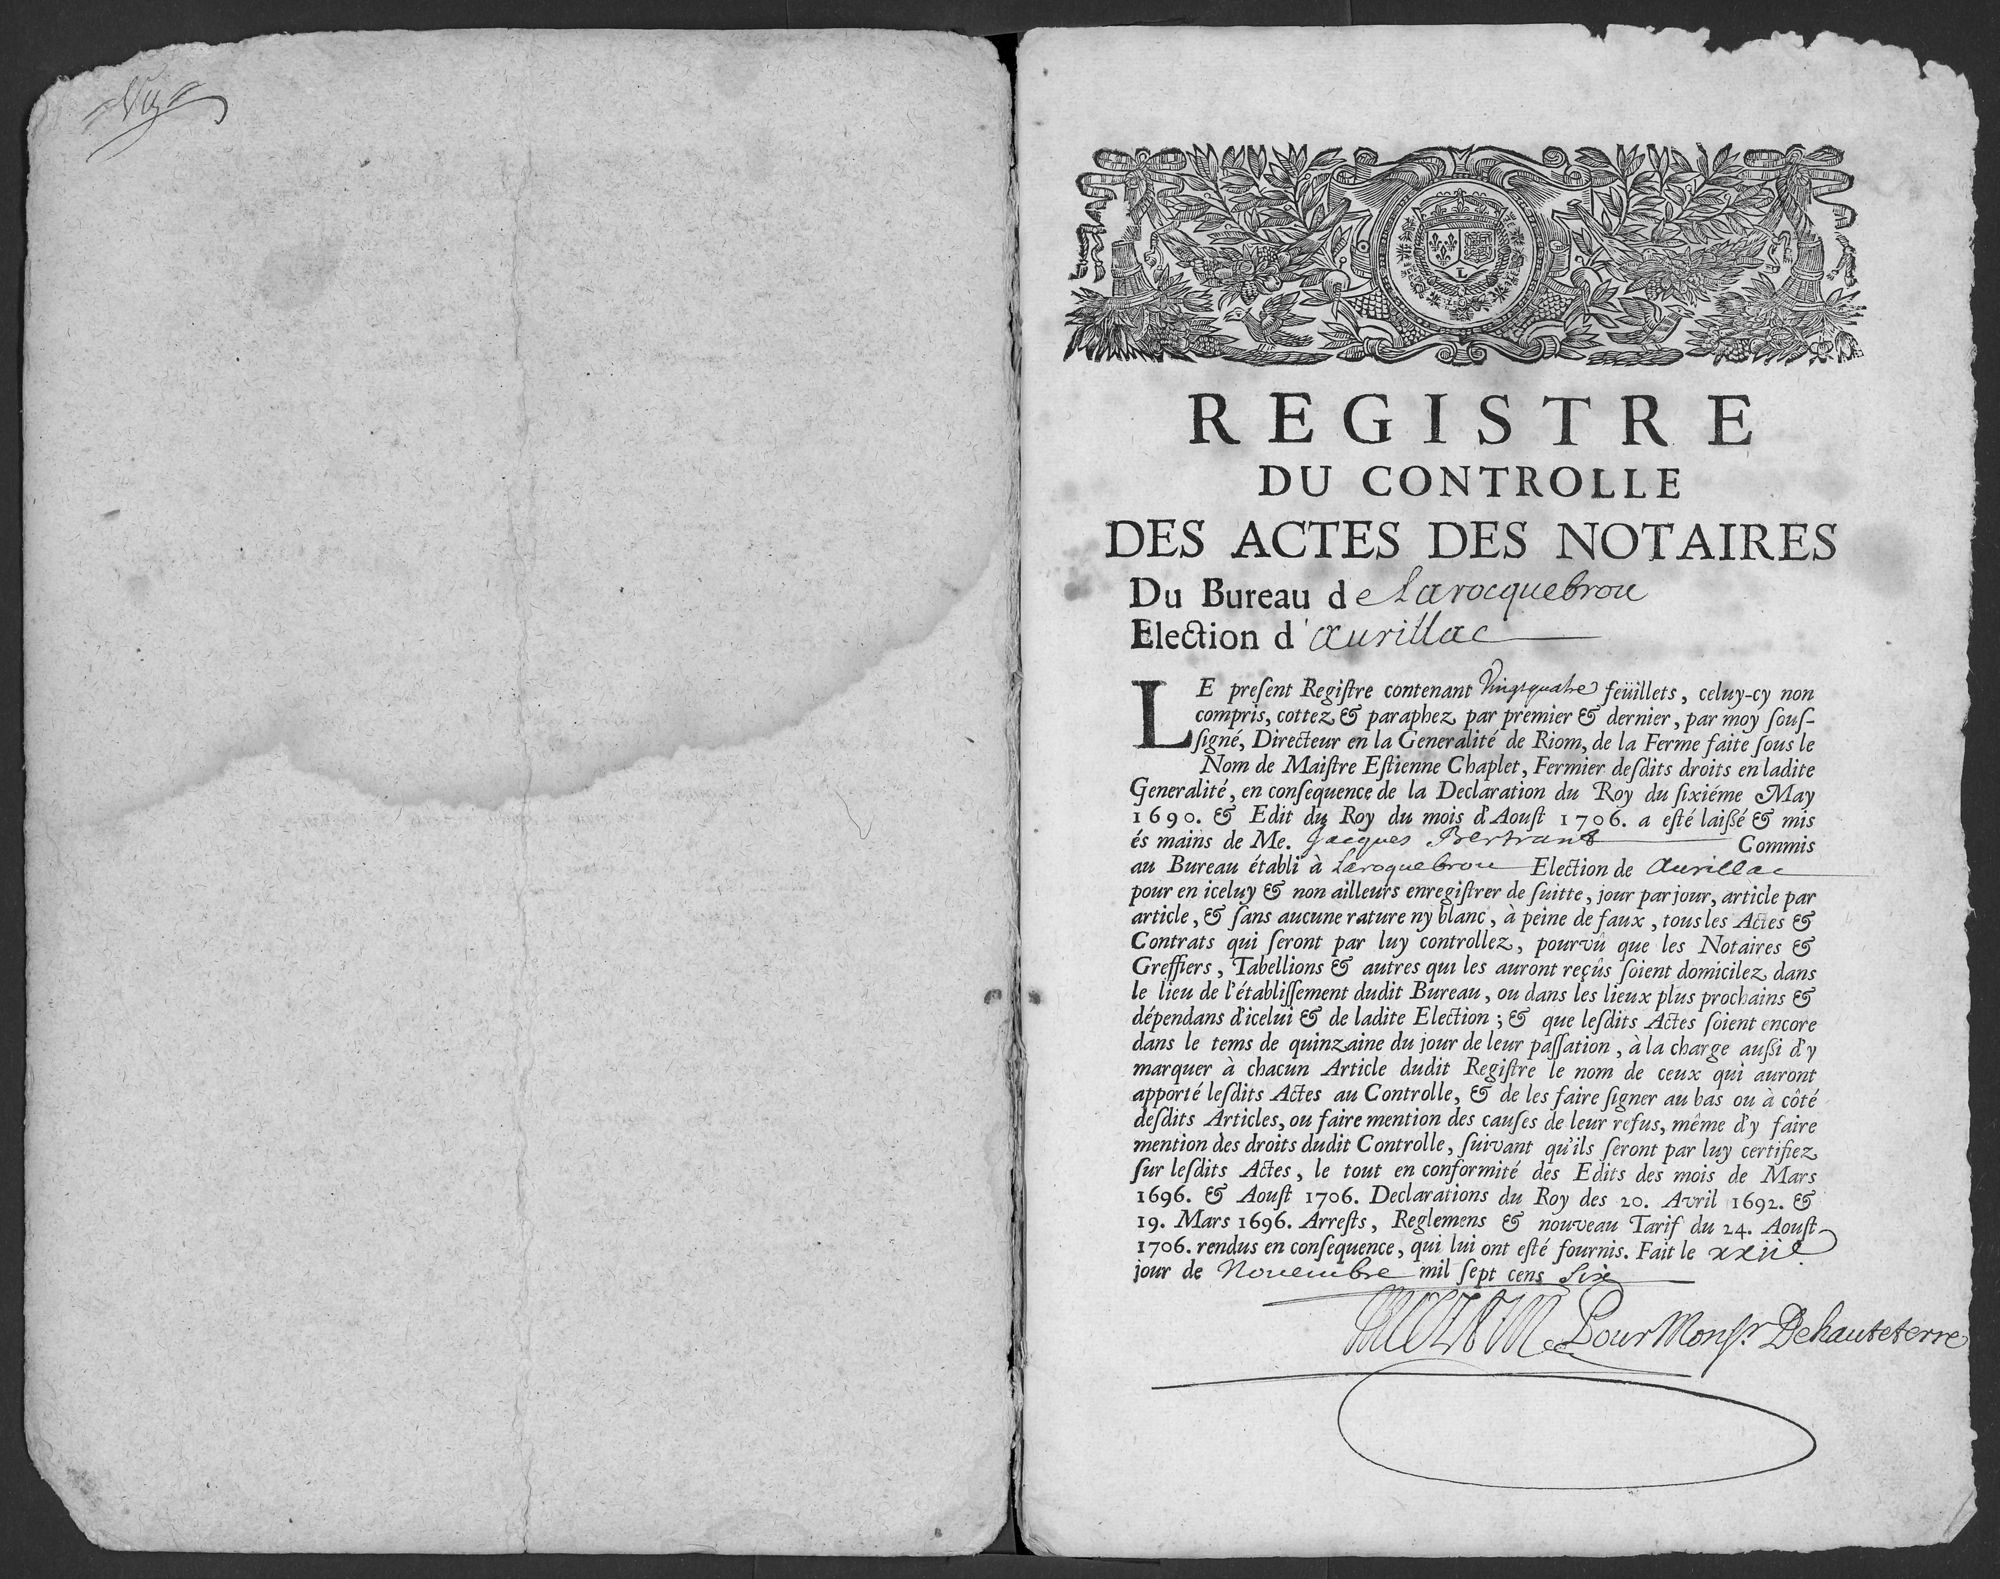 REGISTRE
DU CONTROLLE
DES ACTES DES NOTAIRES
Du Bureau de Larocquebrou
Election d'aurillac
LE preſent Regiſtre contenant Vingtquatre feüillets, celuy-cy non
compris, cottez & paraphez par premier & dernier, par moy ſouſ-
ſigné, Directeur en la Generalité de Riom, de la Ferme faite ſous le
Nom de Maiſtre Eſtienne Chaplet, Fermier deſdits droits en ladite
Generalité, en conſequence de la Declaration du Roy du ſixiéme May
1690. & Edit du Roy du mois d'Aouſt 1706. a eſté laiſſé & mis
és mains de Me. Jacques Bertrand Commis
au Bureau établi à Laroquebrou Election de Aurillac
pour en iceluy & non ailleurs enregiſtrer de ſuitte, jour par jour, article par
article, & ſans aucune rature ny blanc, à peine de faux, tous les Actes &
Contrats qui ſeront par luy controllez, pourvû que les Notaires &
Greffiers, Tabellions & autres qui les auront reçûs ſoient domicilez dans
le lieu de l'établiſſement dudit Bureau, ou dans les lieux plus prochains &
dépendans d'icelui & de ladite Election ; & que leſdits Actes ſoient encore
dans le tems de quinzaine du jour de leur paſſation, à la charge auſſi d'y
marquer à chacun Article dudit Regiſtre le nom de ceux qui auront
apporté leſdits Actes au Controlle, & de les faire ſigner au bas ou à côté
deſdits Articles, ou faire mention des cauſes de leur refus, même d'y faire
mention des droits dudit Controlle, ſuivant qu'ils ſeront par luy certifiez
ſur leſdits Actes, le tout en conformité des Edits des mois de Mars
1696. & Aouſt 1706. Declarations du Roy des 20. Avril 1692. &
19. Mars 1696. Arreſts, Reglemens & nouveau Tarif du 24. Aouſt
1706. rendus en conſequence, qui lui ont eſté fournis. Fait le xxiie
jour de Nouembre mil ſept cens Six
Pour Monsr. Dehauteterre